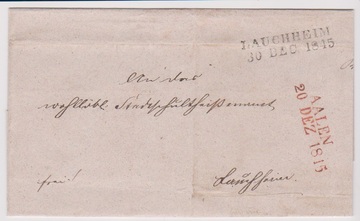 LAUCHHEIM
30 DEC 1845
AALEN
20 DEZ 1845
An das
wohllöbl. Stadtschultheißenamt
frei
Lauchheim.